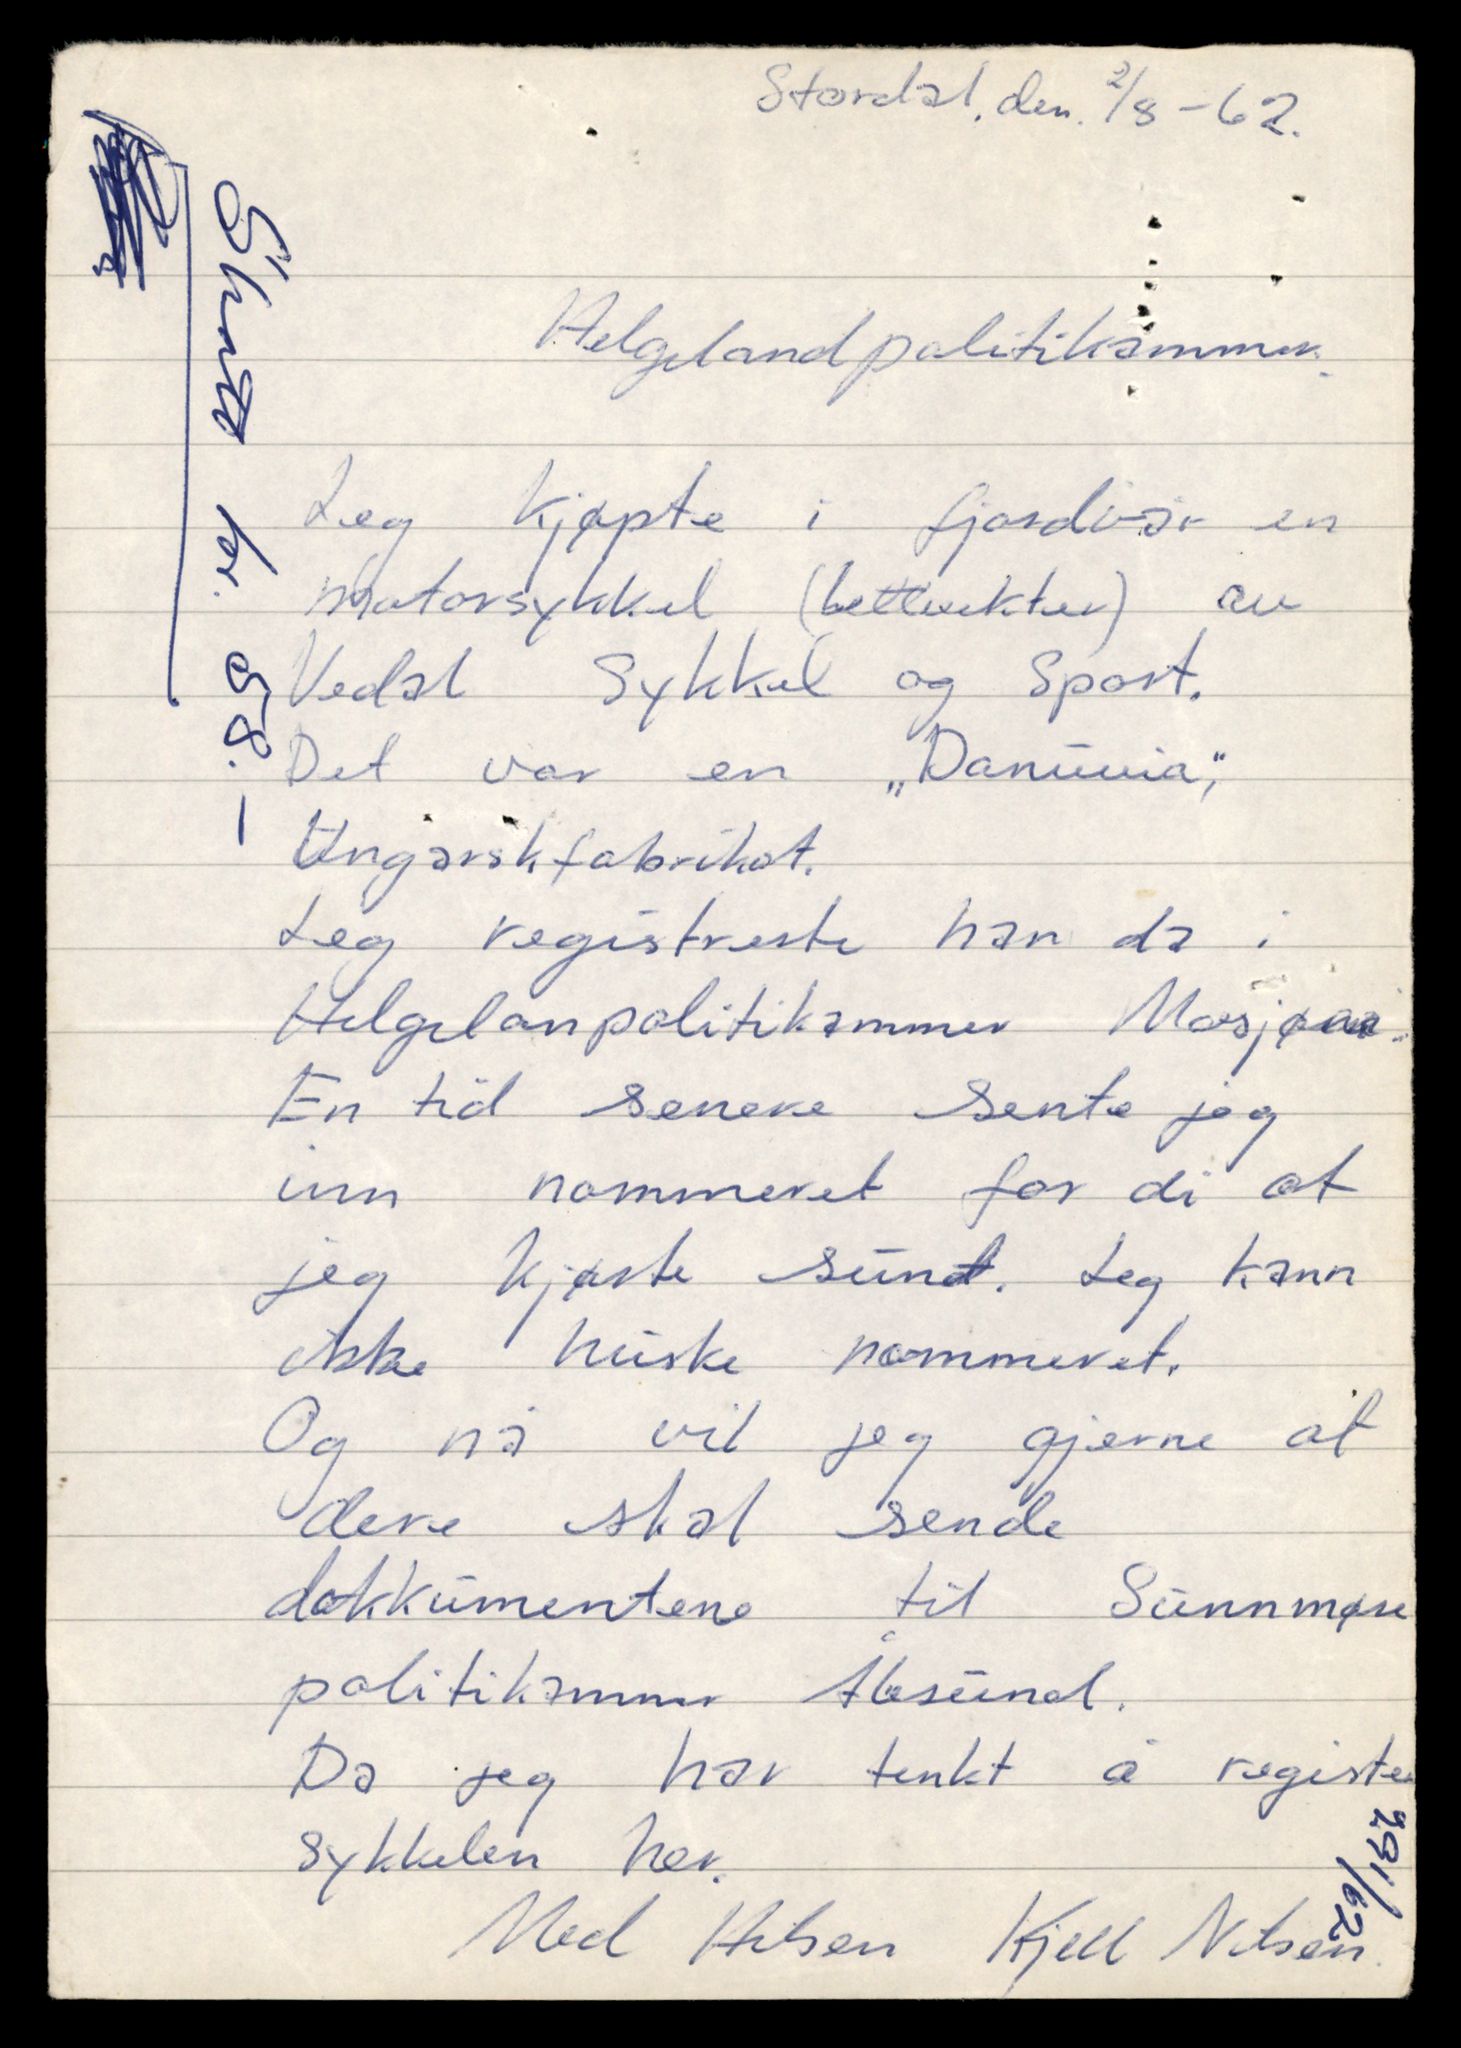 Stordal, den. 2/8 - 62.
Helgeland politikammer.
Jeg kjøpte i fjordvår en
motorsykkel (lettvekter) av
Vedal Sykkel og Sport.
Det var en „Danuvia",
Ungarskfabrikat.
Jeg registreste han da i
Helgelanpolitikammer Mosjøen.
En tid senere sente jeg
inn nommeret for di at
jeg kjøste sund. Jeg kann
ikke huske nommeret.
Og nå vil jeg gjerne at
dere skal sende
dokkumentene til Sunnmøre
politikammer Ålesund.
Da jeg har tenkt å register
sykkelen her.
Med Hilsen Kjell Nilsen.
kr. 58.-
291/62